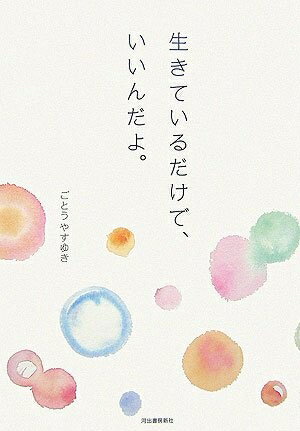 生きているだけで、
いいんだよ。
ごとうやすゆき
河出書房新社